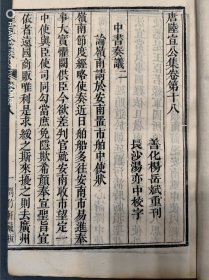 唐陸宣公集卷第十八
善化楊岳斌重刊
長沙湯亦中校字
中書奏議二
論嶺南請於安南置市舶中使狀
嶺南節度經略使奏近日舶船多往安南市易進奉
事大實懼闕供臣今欲差判官就安南收市望定一
中使與臣使司同勾當庶免隱欺希顏奉宣聖旨宜
依者遠國商販唯利是求綏之斯來擾之則去廣州